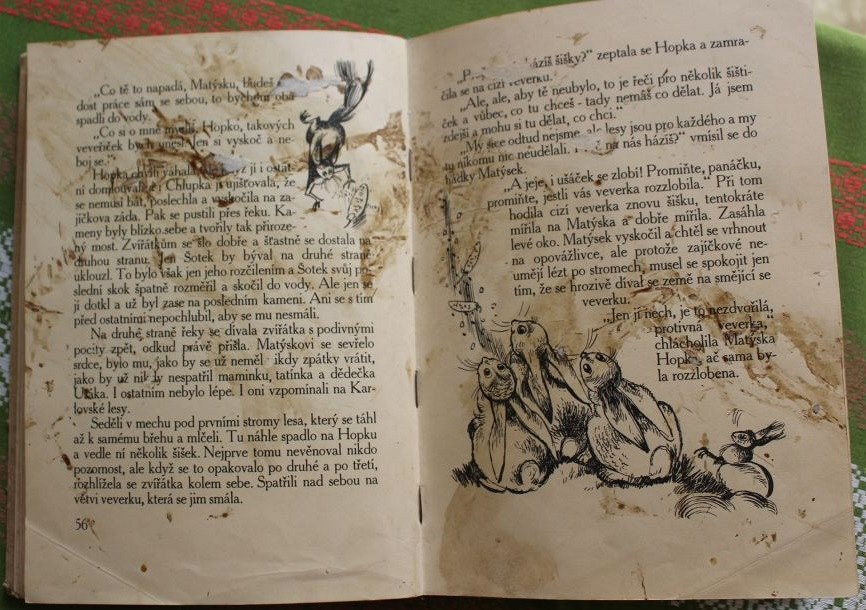 „Co tě to napadá, Matýsku, budeš
dost práce sám se sebou, to bychom oba
spadli do vody.
„Co si o mně myslíš, Hopko, takových
veveřiček bych unesl. Jen si vyskoč a ne-
boj se.“
Hopka chvíli váhala, ale když ji i ostat-
ní domlouvali i Chlupka ji ujišťovala, že
se nemusí bát, poslechla a vyskočila na za-
jíčkova záda. Pak se pustili přes řeku. Ka-
meny byly blízko sebe a tvořily tak přiroze-
ný most. Zvířátkům se šlo dobře a šťastně se dostala na
druhou stranu. Jen Sotek by býval na druhé straně
uklouzl. To bylo však jen jeho rozčilením a Sotek svůj po-
slední skok špatně rozměřil a skočil do vody. Ale jen se
jí dotkl a už byl zase na posledním kameni. Ani se s tím
před ostatními nepochlubil, aby se mu nesmáli.
Na druhé straně řeky se dívala zvířátka s podivnými
pocity zpět, odkud právě přišla. Matýskovi se sevřelo
srdce, bylo mu, jako by se už neměl ikdy zpátky vrátit,
jako by už nikdy nespatřil maminku, tatínka a dědečka
Ušáka. I ostatním nebylo lépe. I oni vzpomínali na Kar-
lovské lesy.
Seděli v mechu pod prvními stromy lesa, který se táhl
až k samému břehu a mlčeli. Tu náhle spadlo na Hopku
a vedle ní několik šišek. Nejprve tomu nevěnoval nikdo
pozornost, ale když se to opakovalo po druhé a po třetí,
rozhlížela se zvířátka kolem sebe. Spatřili nad sebou na
větvi veverku, která se jim smála.
56
házíš šišky?“ zeptala se Hopka a zamra-
čila se na cizí veverku.
„Ale, ale, aby tě neubylo, to je řečí pro několik šišti-
ček a vůbec, co tu chceš - tady nemáš co dělat. Já jsem
zdejší a mohu si tu dělat, co chci.“
„My sice odtud nejsme, ale lesy jsou pro každého a my
tu nikomu nic neudělali. na nás házíš?“ vmísil se do
hádky Matýsek.
„A jeje, i ušáček se zlobí! Promiňte, panáčku,
promiňte, jestli vás veverka rozzlobila.“ Při tom
hodila cizí veverka znovu šišku, tentokráte
mířila na Matýska a dobře mířila. Zasáhla
levé oko. Matýsek vyskočil a chtěl se vrhnout
na opovážlivce, ale protože zajíčkové ne-
umějí lézt po stromech, musel se spokojit jen
tím, že se hrozivě díval se země na smějící se
veverku.
„Jen jí nech, je to nezdvořilá,
protivná veverka,“
chlácholila Matýska
Hopka, ač sama by-
la rozzlobena.